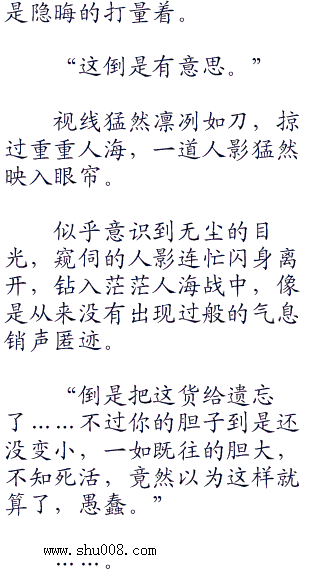 是隐晦的打量着。
“这倒是有意思。”
视线猛然凛冽如刀，掠
过重重人海，一道人影猛然
映入眼帘。
似乎意识到无尘的目
光，窥伺的人影连忙闪身离
开，钻入茫茫人海战中，像
是从来没有出现过般的气息
销声匿迹。
“倒是把这货给遗忘
了……不过你的胆子到是还
没变小，一如既往的胆大，
不知死活，竟然以为这样就
算了，愚蠢。”
www.shu008.com
……。